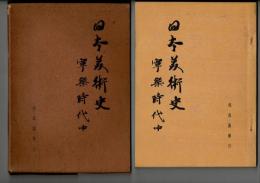 日本美術史
寧樂時代中
日本美術史
寧樂時代中